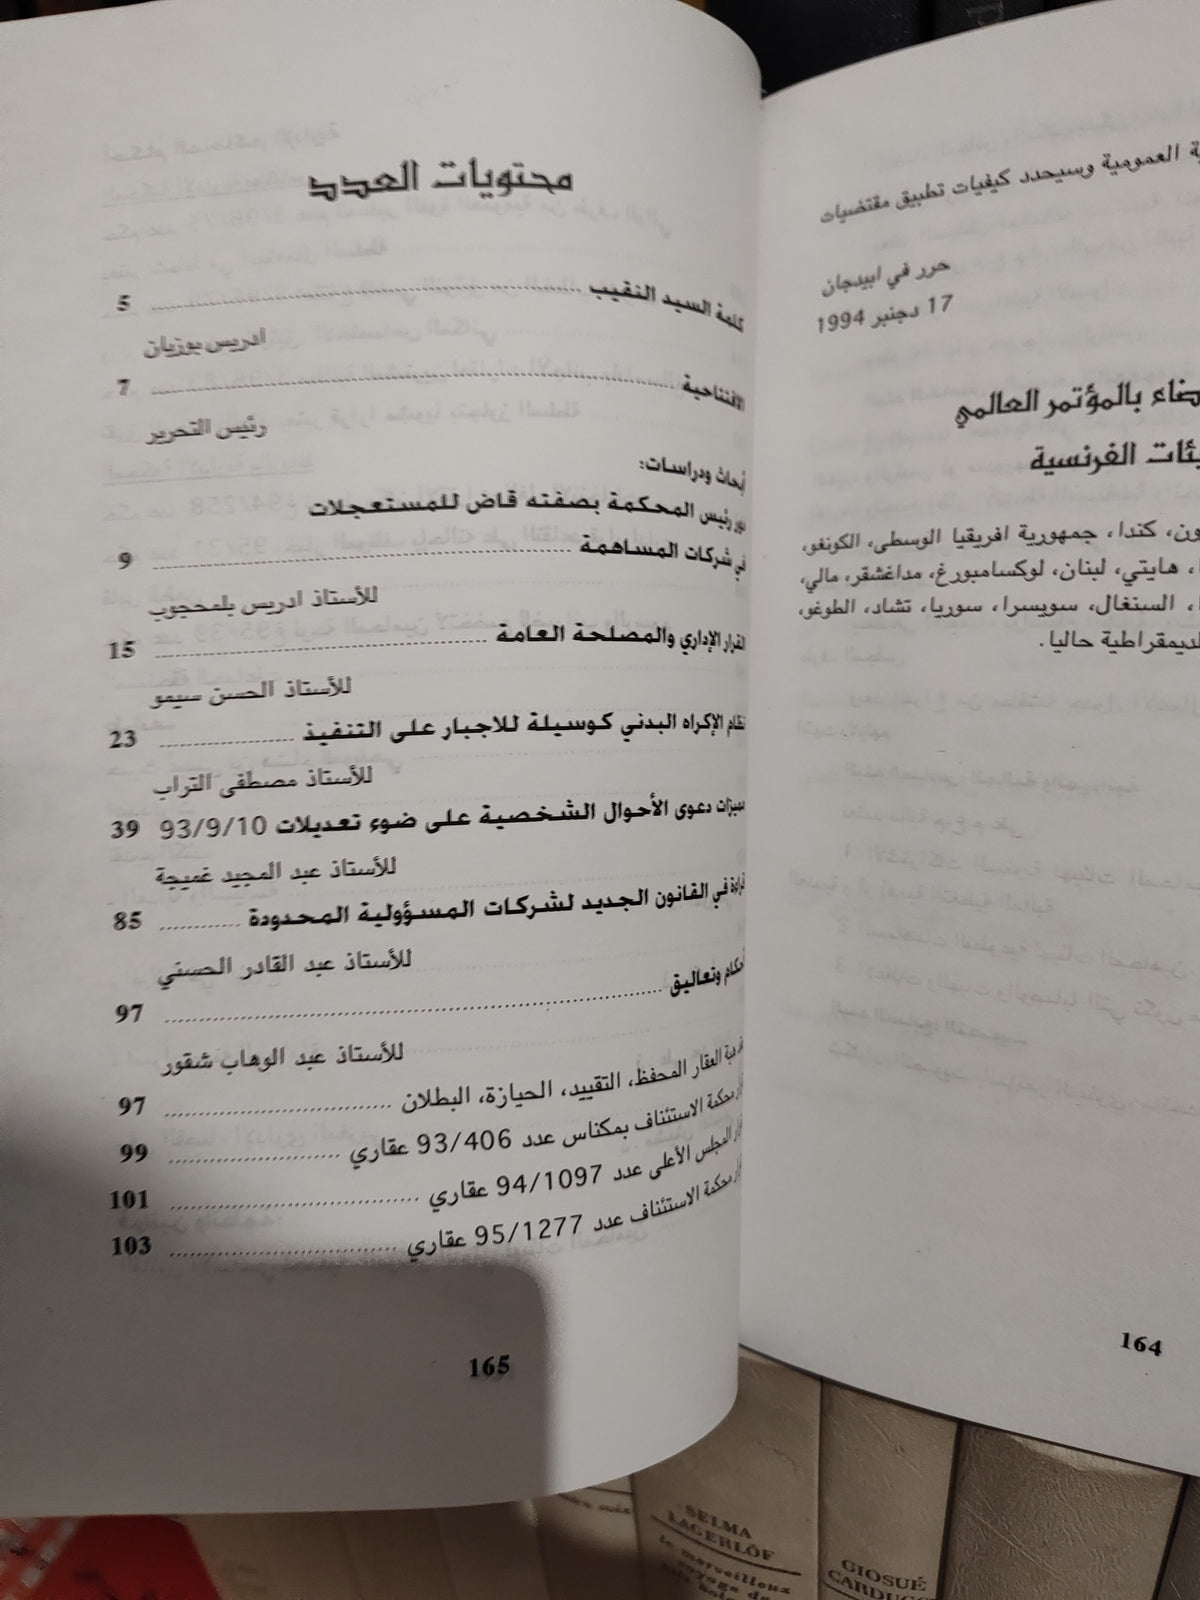 ة العمومية وسيحدد كيفيات تطبيق مقتضيات
حرر في ابيدجان
17 دجنبر 1994
ضاء بالمؤتمر العالمي
يئات الفرنسية
ون، كندا، جمهورية افريقيا الوسطى، الكونغو،
، هايتي، لبنان، لوكسامبورغ، مداغشقر، مالي،
، السنغال، سويسرا، سوريا، تشاد، الطوغو،
لديمقراطية حاليا.
164
محتويات العدد
كلمة السيد النقيب 5
ادريس بوزيان
الافتتاحية 7
رئيس التحرير
أبحاث ودراسات:
دور رئيس المحكمة بصفته قاض للمستعجلات
في شركات المساهمة 9
للأستاذ ادريس بلمحجوب
القرار الإداري والمصلحة العامة 15
للأستاذ الحسن سيمو
نظام الإكراه البدني كوسيلة للاجبار على التنفيذ 23
للأستاذ مصطفى التراب
مميزات دعوى الأحوال الشخصية على ضوء تعديلات 93/9/10 39
للأستاذ عبد المجيد غميجة
قراءة في القانون الجديد لشركات المسؤولية المحدودة 85
للأستاذ عبد القادر الحسني
أحكام وتعاليق 97
للأستاذ عبد الوهاب شقور
العقار المحفظ، التقييد، الحيازة، البطلان 97
قرار محكمة الاستئناف بمكناس عدد 93/406 عقاري 99
قرار المجلس الأعلى عدد 94/1097 عقاري 101
قرار محكمة الاستئناف عدد 95/1277 عقاري 103
165
SELMA
LAGERLÖF
le merveilleux
voyage de
GIOSUÉ
CARDUCC